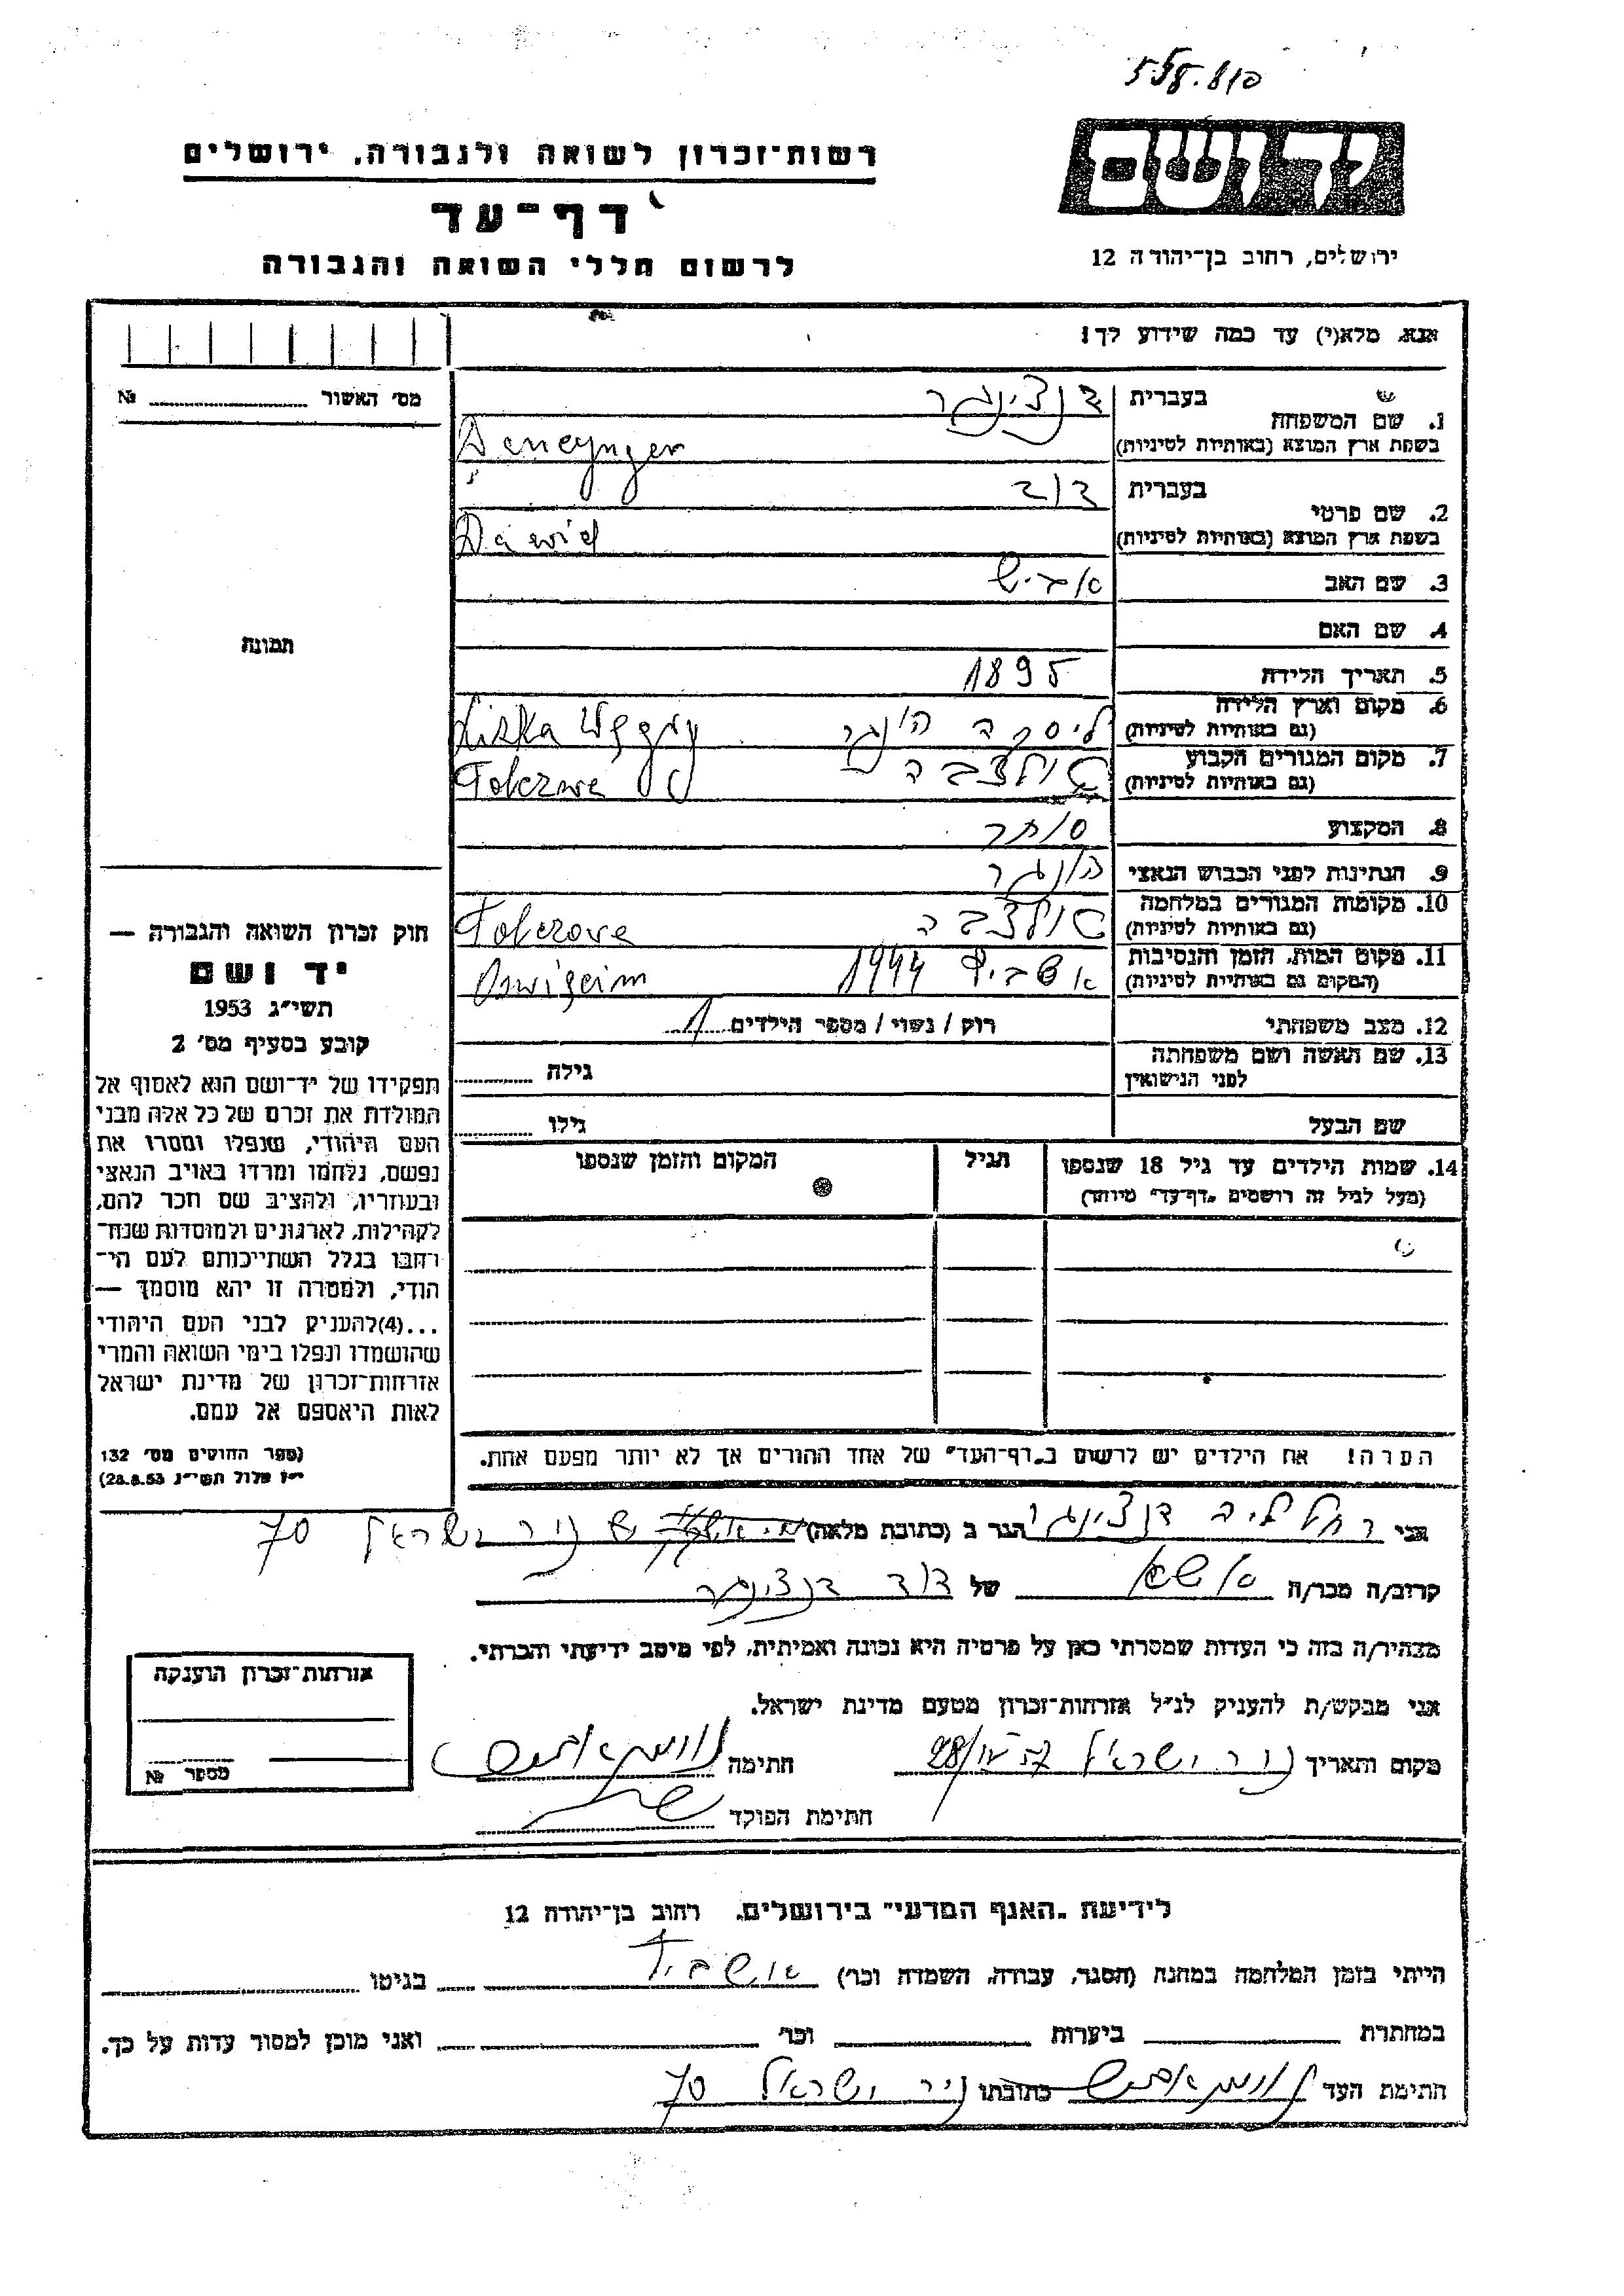 רשות־זכרון לשואה ולגבורה, ירושלים
יד ושם
דף־עד
לרשום חללי השואה והגבורה
ירושלים, רחוב בן־יהודה 12
אנא, מלא(י) עד כמה שידוע לך!
מס׳ האשור № 
1. שם המשפחה
בעברית דנצינגר
בשפת ארץ המוצא (באותיות לטיניות) Dancynger
2. שם פרטי
בעברית דוד
בשפת ארץ המוצא (באותיות לטיניות) Dawid
3. שם האב
4. שם האם
תמונה
5. תאריך הלידה 1895
6. מקום וארץ הלידה
(גם באותיות לטיניות) ליסקה הונגר Liska Węgry
7. מקום המגורים הקבוע
(גם באותיות לטיניות) Tolczowa
8. המקצוע סוחר
9. הנתינות לפני הכבוש הנאצי הונגר
10. מקומות המגורים במלחמה
(גם באותיות לטיניות) Tolczowa
11. מקום המות, הזמן והנסיבות
(המקום גם באותיות לטיניות) 1944
12. מצב משפחתי רוק / נשוי / מספר הילדים 1
13. שם האשה ושם משפחתה
לפני הנישואין גילה
שם הבעל גילו
14. שמות הילדים עד גיל 18 שנספו הגיל המקום והזמן שנספו
(מעל לגיל זה רושמים „דף־עד״ מיוחד)
חוק זכרון השואה והגבורה —
יד ושם
תשי״ג 1953
קובע בסעיף מס׳ 2
תפקידו של יד־ושם הוא לאסוף אל
המולדת את זכרם של כל אלה מבני
העם היהודי, שנפלו ומסרו את
נפשם, נלחמו ומרדו באויב הנאצי
ובעוזריו, ולהציב שם וזכר להם,
לקהילות, לארגונים ולמוסדות שנח־
רבו בגלל השתייכותם לעם הי־
הודי, ולמטרה זו יהא מוסמך —
...(4) להעניק לבני העם היהודי
שהושמדו ונפלו בימי השואה והמרי
אזרחות־זכרון של מדינת ישראל
לאות היאספם אל עמם.
(ספר החוקים מס׳ 132
י״ז אלול תשי״ג 28.8.53)
הערה! את הילדים יש לרשום ב„דף־העד״ של אחד ההורים אך לא יותר מפעם אחת.
אני דנצינגר הגר ב (כתובת מלאה) ניר ישראל 70
קרוב/ה מכר/ה של דוד דנצינגר
מצהיר/ה בזה כי העדות שמסרתי כאן על פרטיה היא נכונה ואמיתית, לפי מיטב ידיעתי והכרתי.
אני מבקש/ת להעניק לנ״ל אזרחות־זכרון מטעם מדינת ישראל.
מקום ותאריך ניר ישראל חתימה
חתימת הפוקד
אזרחות־זכרון הוענקה
מספר №
לידיעת „האגף המדעי״ בירושלים, רחוב בן־יהודה 12
הייתי בזמן המלחמה במחנה (הסגר, עבודה, השמדה וכו׳) בגיטו
במחתרת ביערות וכו׳ ואני מוכן למסור עדות על כך.
חתימת העד כתובתו ניר ישראל 70